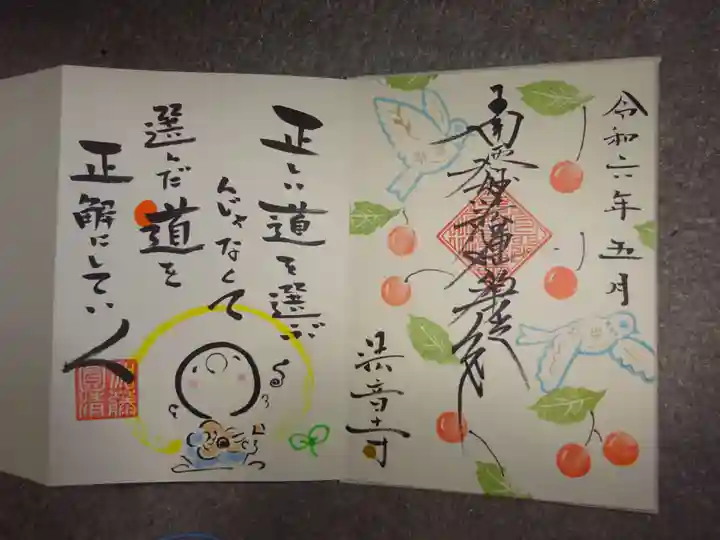 令和六年五月
南無妙法蓮華経
正しい道を選ぶ
んじゃなくて
選んだ道を
正解にしていく